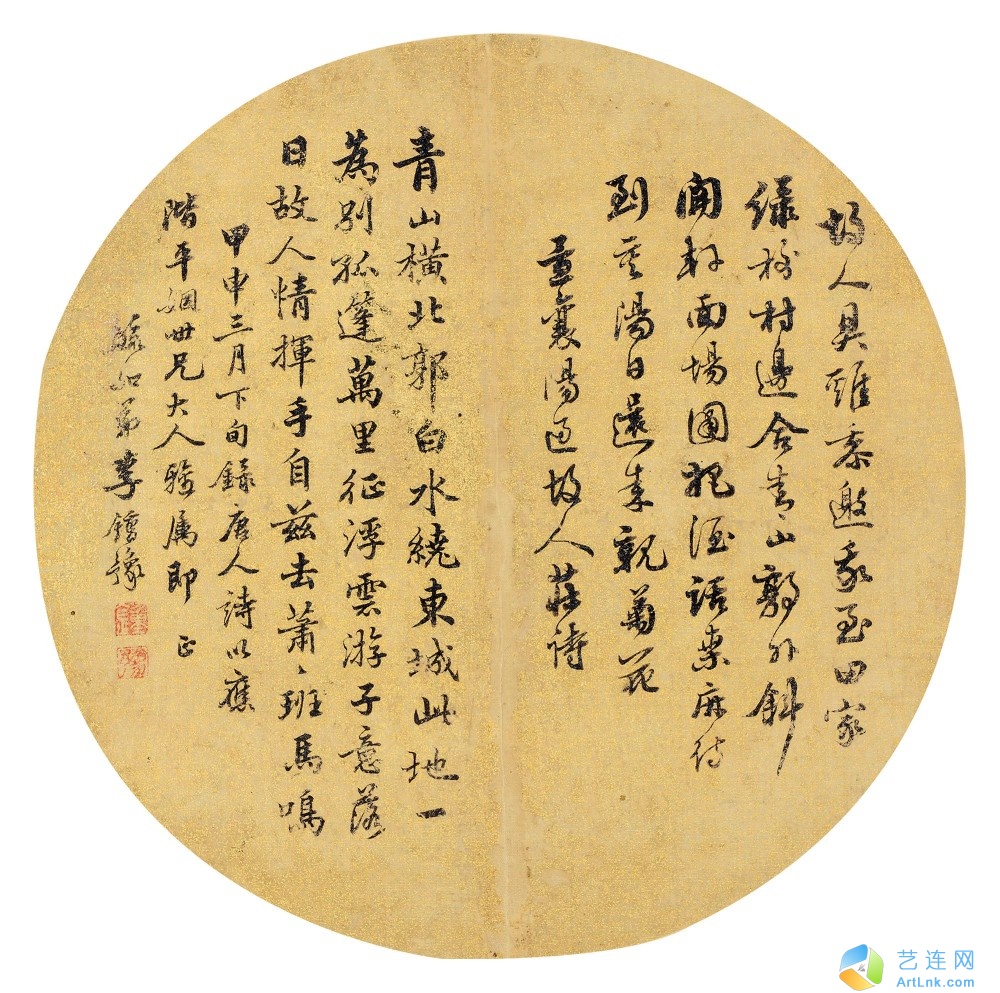 故人具雞黍邀我至田家
綠樹村邊合青山郭外斜
開軒面場圃把酒話桑麻待
到重陽日還來就菊花
孟襄陽過故人莊詩
青山橫北郭白水繞東城此地一
為別孤篷萬里征浮雲游子意落
日故人情揮手自茲去蕭、班馬鳴
甲申三月下旬錄唐人詩以應
階平姻世兄大人雅属即 正
如弟李鍾豫
艺连网
ArtLnk.com